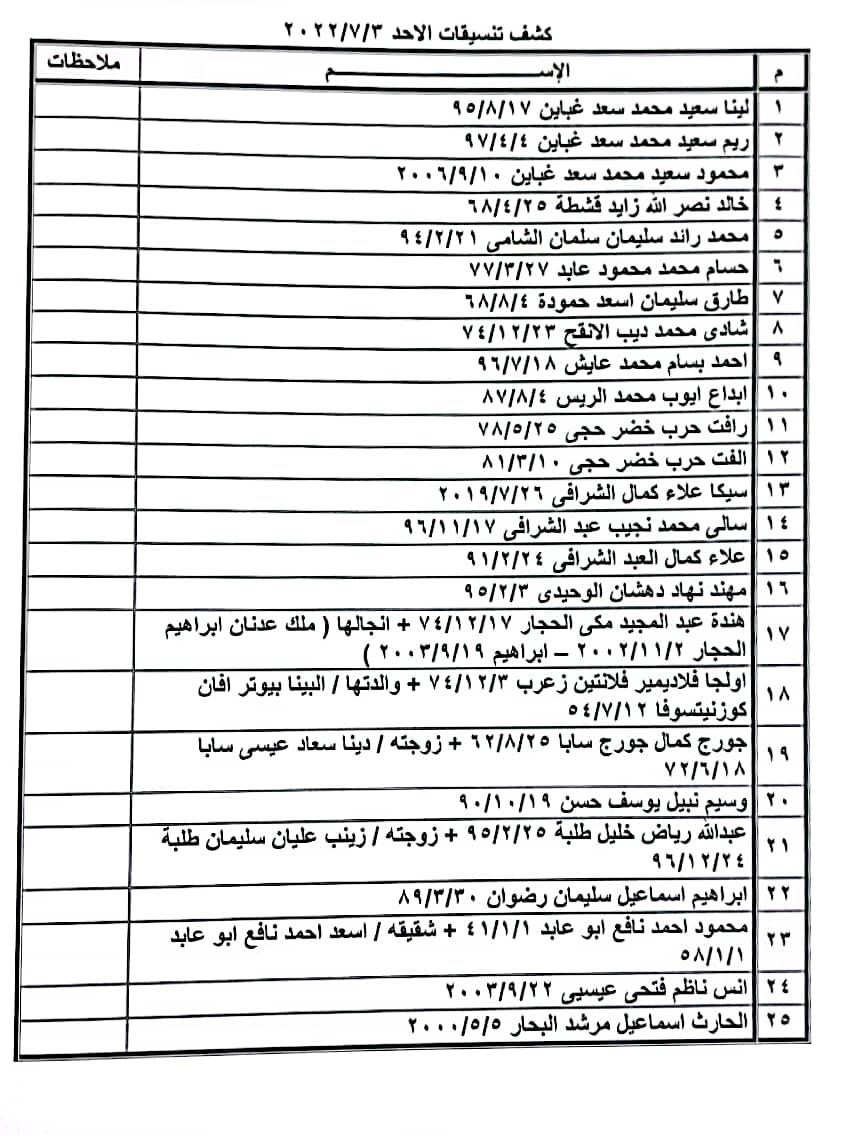 كشف تنسيقات الاحد ٢٠٢٢/٧/٣
م الإســـــــــم ملاحظات
١ لينا سعيد محمد سعد غباين ٩٥/٨/١٧
٢ ريم سعيد محمد سعد غباين ٩٧/٤/٤
٣ محمود سعيد محمد سعد غباين ٢٠٠٦/٩/١٠
٤ خالد نصر الله زايد قشطة ٦٨/٤/٢٥
٥ محمد رائد سليمان سلمان الشامى ٩٤/٢/٢١
٦ حسام محمد محمود عابد ٧٧/٣/٢٧
٧ طارق سليمان اسعد حمودة ٦٨/٨/٤
٨ شادى محمد ديب الانقح ٧٤/١٢/٢٣
٩ احمد بسام محمد عايش ٩٦/٧/١٨
١٠ ابداع ايوب محمد الريس ٨٧/٨/٤
١١ رافت حرب خضر حجى ٧٨/٥/٢٥
١٢ الفت حرب خضر حجى ٨١/٣/١٠
١٣ سيكا علاء كمال الشرافى ٢٠١٩/٧/٢٦
١٤ سالى محمد نجيب عبد الشرافى ٩٦/١١/١٧
١٥ علاء كمال العبد الشرافى ٩١/٢/٢٤
١٦ مهند نهاد دهشان الوحيدى ٩٥/٢/٣
١٧ هندة عبد المجيد مكى الحجار ٧٤/١٢/١٧ + انجالها ( ملك عدنان ابراهيم
الحجار ٢٠٠٢/١١/٢ – ابراهيم ٢٠٠٣/٩/١٩ )
١٨ اولجا فلاديمير فلانتين زعرب ٧٤/١٢/٣ + والدتها / البينا بيوتر افان
كوزنيتسوفا ٥٤/٧/١٢
١٩ جورج كمال جورج سابا ٦٢/٨/٢٥ + زوجته / دينا سعاد عيسى سابا
٧٢/٦/١٨
٢٠ وسيم نبيل يوسف حسن ٩٠/١٠/١٩
٢١ عبدالله رياض خليل طلبة ٩٥/٢/٢٥ + زوجته / زينب عليان سليمان طلبة
٩٦/١٢/٢٤
٢٢ ابراهيم اسماعيل سليمان رضوان ٨٩/٣/٣٠
٢٣ محمود احمد نافع ابو عابد ٤١/١/١ + شقيقه / اسعد احمد نافع ابو عابد
٥٨/١/١
٢٤ انس ناظم فتحى عيسى ٢٠٠٣/٩/٢٢
٢٥ الحارث اسماعيل مرشد البحار ٢٠٠٠/٥/٥